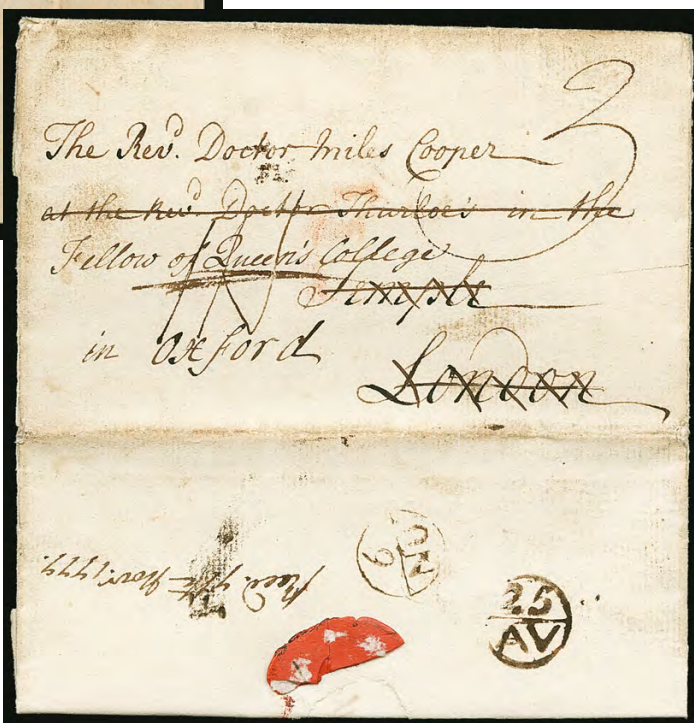 The Revd. Doctor Miles Cooper
at the Revd. Doctor Thurloe's in the
Fellow of Queen's College
Temple
in Oxford
London
3
9
NO
25
AV
Recd. Novr. 1777.